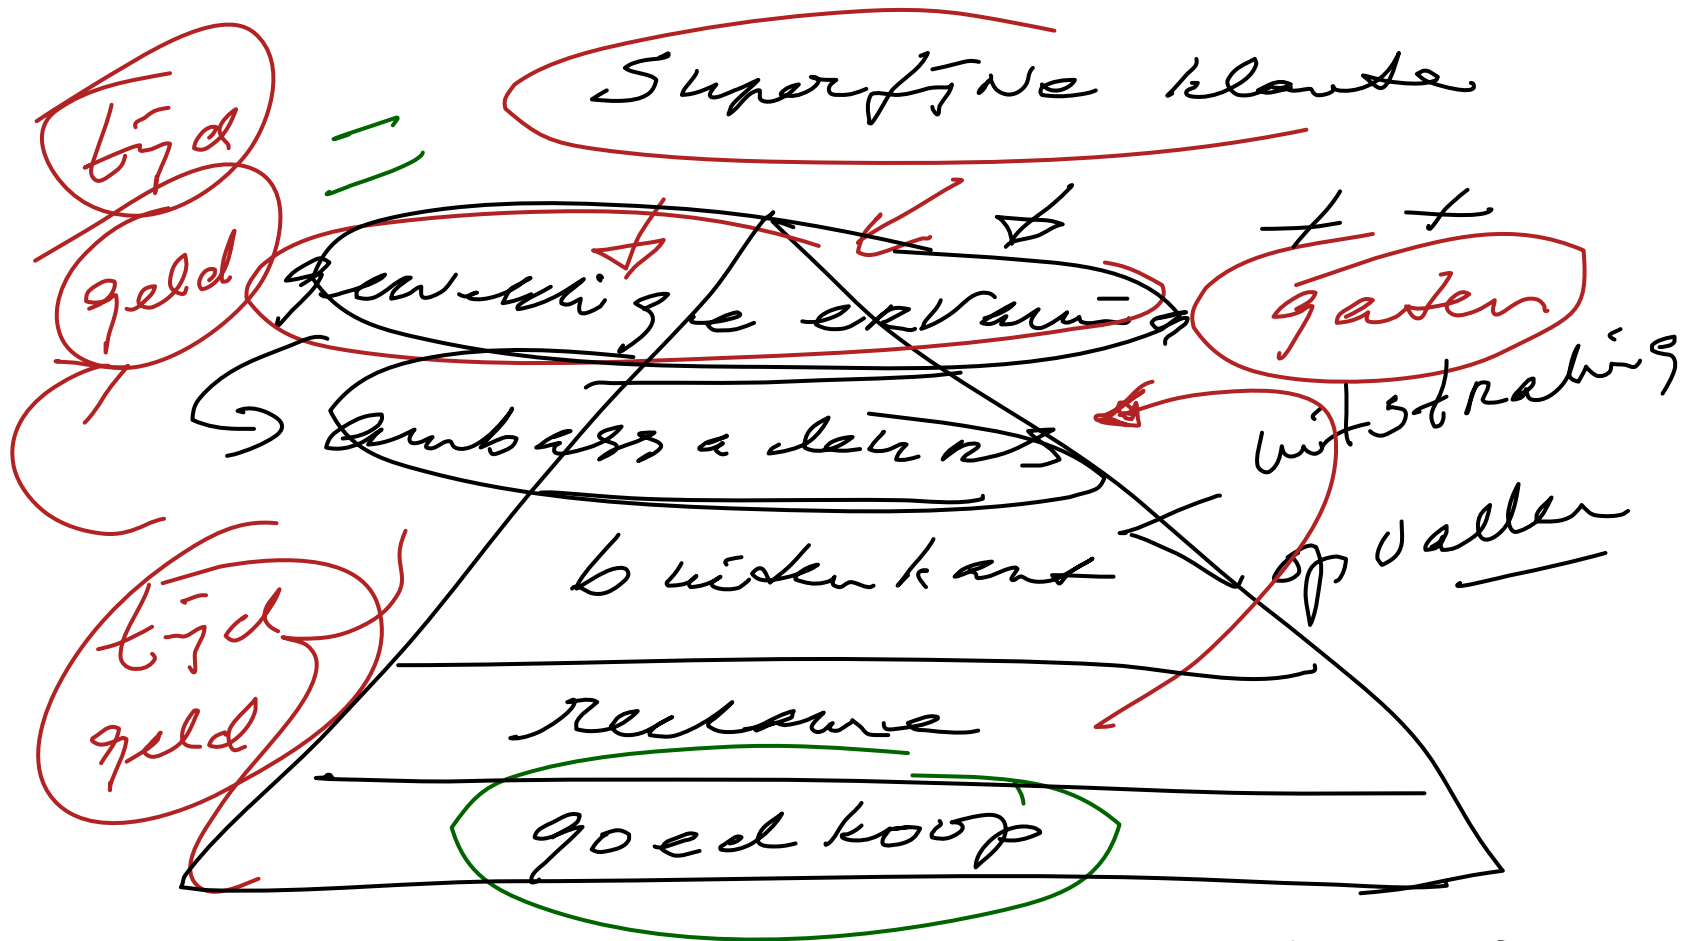 Superfijne klanten
tijd
geld
geweldige ervaring
gaten
ambassadeurs
uitstraling
opvallen
buitenkant
tijd
geld
reclame
goedkoop